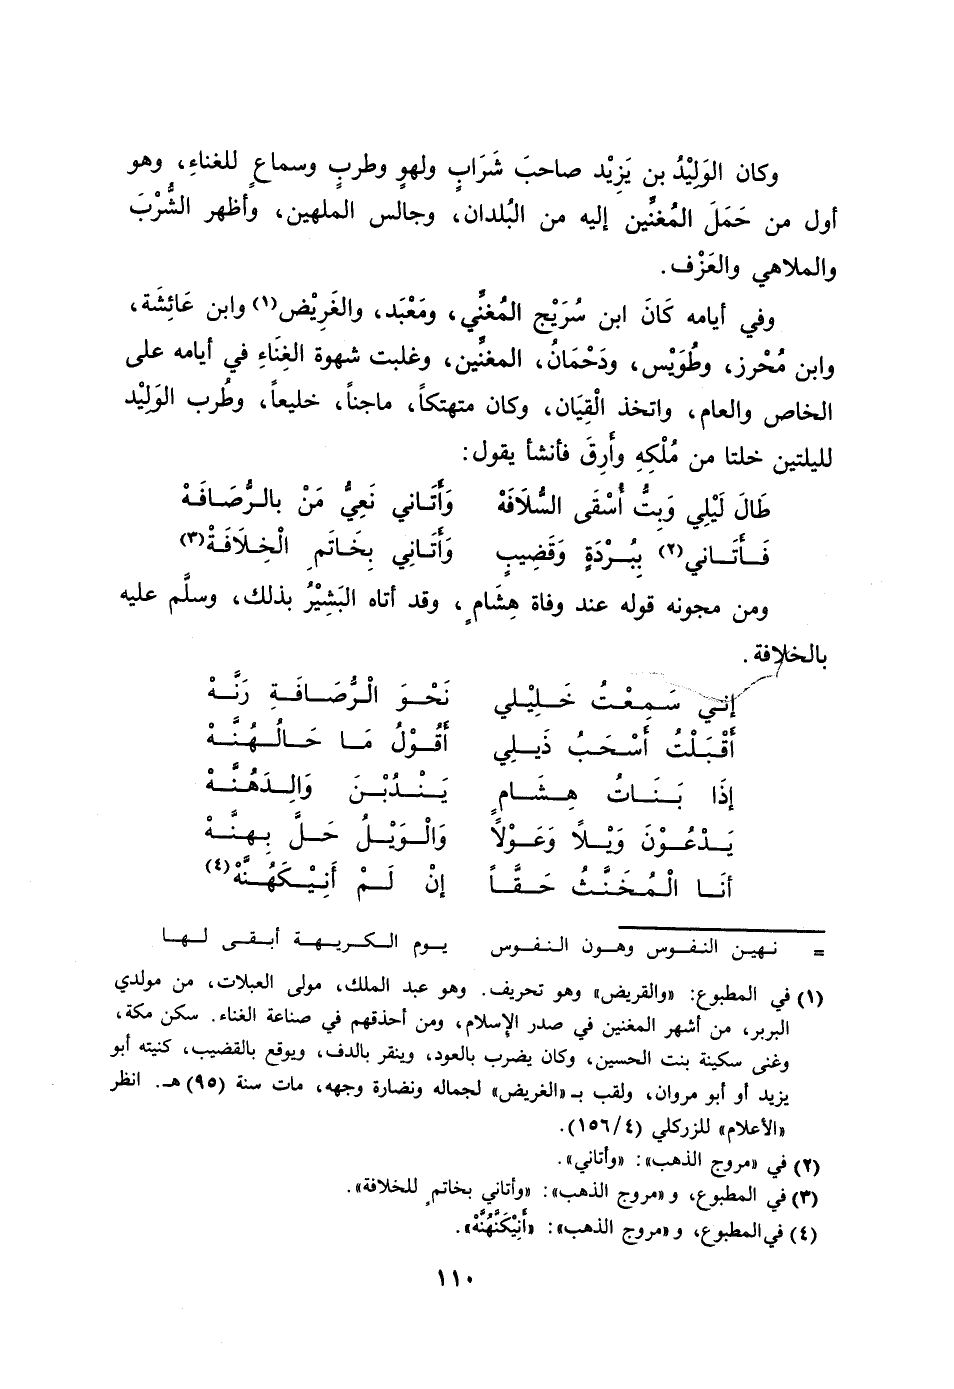 وكان الوَلِيْدُ بن يَزِيْد صاحبَ شَرَابٍ ولهوٍ وطربٍ وسماعٍ للغناءِ، وهو
أول من حَمَلَ المُغنِّين إليه من البُلدان، وجالس الملهين، وأظهر الشُّرْبَ
والملاهي والعَزْف.
وفي أيامه كَانَ ابن سُرَيْج المُغنِّي، ومَعْبَد، والغَرِيْض(١) وابن عَائِشَة،
وابن مُحْرز، وطُوَيْس، ودَحْمَانُ، المغنِّين، وغلبت شهوة الغِنَاءِ في أيامه على
الخاص والعام، واتخذ الْقِيَان، وكان متهتكاً، ماجناً، خليعاً، وطُرب الوَلِيْد
لليلتين خلتا من مُلْكِهِ وأَرِقَ فأنشأ يقول:
طَالَ لَيْلِي وَبِتُّ أُسْقَى السُّلَافَهْ وَأَتَاني نَعِيُّ مَنْ بالرُّصَافَهْ
فَأَتَاني(٢) بِبُرْدَةٍ وَقَضِيبٍ وَأَتَانِي بِخَاتَمِ الْخِلَافَهْ(٣)
ومن مجونه قوله عند وفاة هِشَامٍ، وقد أتاه البَشِيْرُ بذلك، وسلَّم عليه
بالخلافة.
إنّي سَمِعْتُ خَلِيْلي نَحْوَ الْرُّصَافَةِ رَنَّهْ
أَقْبَلْتُ أَسْحَبُ ذَيلِي أَقُوْلُ مَا حَالُهُنَّهْ
إذَا بَنَاتُ هِشَامٍ يَنْدُبْنَ وَالِدَهُنَّهْ
يَدْعُوْنَ وَيْلاً وَعَوْلاً وَالْوَيْلُ حَلَّ بِهِنَّهْ
أنَا الْمُخَنَّثُ حَقَّاً إنْ لَمْ أَنِيْكَهُنَّهْ(٤)
= نهين النفوس وهون النفوس يوم الكريهة أبقى لها
(١) في المطبوع: «والقريض» وهو تحريف. وهو عبد الملك، مولى العبلات، من مولدي
البربر، من أشهر المغنين في صدر الإسلام، ومن أحذقهم في صناعة الغناء. سكن مكة،
وغنى سكينة بنت الحسين، وكان يضرب بالعود، وينقر بالدف، ويوقع بالقضيب، كنيته أبو
يزيد أو أبو مروان، ولقب بـ «الغريض» لجماله ونضارة وجهه، مات سنة (٩٥) هـ. انظر
«الأعلام» للزركلي (١٥٦/٤).
(٢) في «مروج الذهب»: «وأتاني».
(٣) في المطبوع، و «مروج الذهب»: «وأتاني بخاتمٍ للخلافة».
(٤) في المطبوع، و «مروج الذهب»: «أَنِيْكَنَّهُنَّهْ».
١١٠